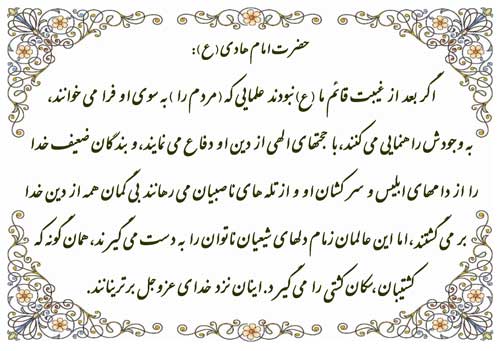 حضرت امام هادی (ع):
اگر بعد از غیبت قائم ما (ع) نبودند علمایی که (مردم را) به سوی او فرا می خوانند،
به وجودش راهنمایی می کنند، با حجتهای الهی از دین او دفاع می نمایند، و بندگان ضعیف خدا
را از دامهای ابلیس و سرکشان او و از تله های ناصبیان می رهانند بی گمان همه از دین خدا
بر می گشتند، اما این عالمان زمام دلهای شیعیان ناتوان را به دست می گیرند، همان گونه که
کشتیبان، سکان کشتی را می گیرد. اینان نزد خدای عزوجل برترینانند.